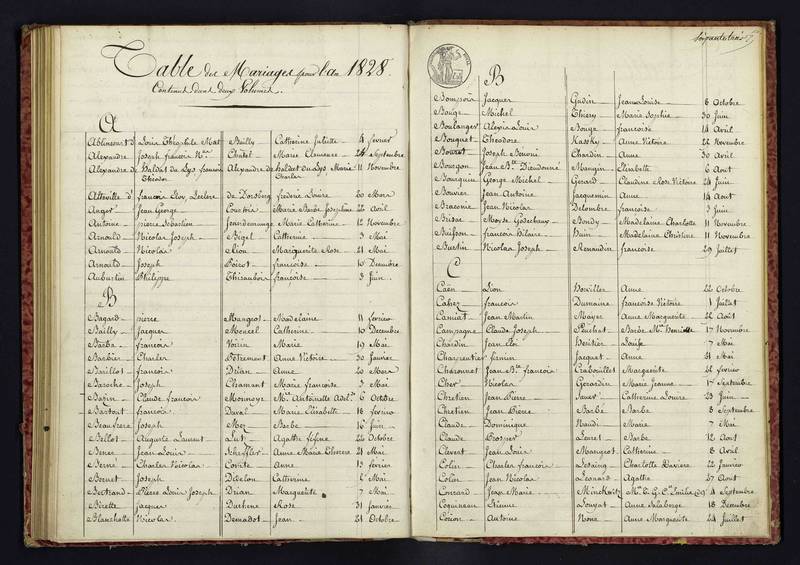 Table des Mariages pour l'an 1828.
Contenus dans deux Volumes.
A
Ablincourt d' Louis Théophile Mat Bailly Catherine Juliette 4 février
Alexandre Joseph françois Nas Chatel Marie Clemence 24 Septembre
Alexandre de Haldat du Lys françois Alexandre de Haldat du Lys Marie 11 Novembre
Théodor Charles
Alteville d' françois Eloy Leclerc de Dorsbing frederic Louise 20 Mars
Anger Jean George Courtois Marie Barbe Josephine 22 Avril
Antoine pierre Sébastien Jeandemange Marie Catherine 12 Novembre
Arnould Nicolas Joseph Bigel Catherine 3 Mai
Arnould Nicolas Lion Marguerite Rose 21 Mai
Arnould Joseph Poirot françoise 10 Décembre
Auburtin Philippe Thiraubois françoise 3 Juin
B
Bagard pierre Mangeot Madelaine 11 février
Bailly Jacques Moncel Catherine 10 Décembre
Barba françois Voirin Marie 19 Mai
Barbier Charles Pétrement Anne Victoire 30 Janvier
Barillot françois Drian Anne 20 Mars
Baroche Joseph Chamant Marie françoise 3 Mai
Bazin Claude françois Mormeye Mie Antoinette Adèle 6 Octobre
Bastour françois Duval Marie Elisabeth 18 février
Beaufrere Joseph Mez Barbe 16 Juin
Bellot Auguste Laurent Lut Agathe fifine 22 Octobre
Bener Jean Louis Scheffler Anne Marie Therese 21 Mai
Berné Charles Nicolas Comte Anne 13 février
Bernet Joseph Dicelon Catherine 1 Mai
Bertrand Pierre Louis Joseph Drian Marguerite 7 Mai
Birette Jacques Duchene Rose 31 Janvier
Blanchette Nicolas Demadot Jean 21 Octobre
B
Bompoix Jacques Gudin Jeanne Louise 6 Octobre
Bouge Michel Thiery Marie Sophie 30 Juin
Boulanger Alexis Louis Bouge françoise 14 Avril
Bouquet Theodore Kasshy Anne Victoire 22 Novembre
Bouret Joseph Benoni Chardin Anne 30 Avril
Bourgon Jean Bte Dieudonné Mangin Elisabeth 6 Aout
Bourquin George Michel Gerard Claudine Rose Victoire 24 Juin
Bouvier Jean Antoine Jacquemin Anne 14 Aout
Braconie Jean Nicolas Delombre françoise 3 Juin
Brisac Moyse Godechaux Bondy Madelaine Charlotte 11 Novembre
Buisson francois hilaire huin Madelaine Christine 11 Novembre
Bustin Nicolas Joseph Renaudin francoise 29 Juillet
C
Caën Lion Horviller Anne 22 Octobre
Cahez francois Dumaine françoise Victoire 1 Juillet
Camiat Jean Martin Mayer Anne Marguerite 22 Août
Campagne Claude Joseph Peuchet Barbe Mie Henriette 17 Novembre
Chardin Jean Eloi Heritier Louise 7 Mai
Charpentier firmin Jacquet Anne 21 Mai
Charonnet Jean Bte francois Crabouillet Marguerite 22 février
Cher Nicolas Gerardin Marie Jeanne 17 Septembre
Chretien Jean Pierre Saner Catherine Louise 23 Juin
Chretien Jean Pierre Barbe Barbe 3 Septembre
Claude Dominique Naud Marie 7 Mai
Claude Prosper Lenret Barbe 12 Aout
Clevent Jean Louis Mangeot Catherine 8 Avril
Colin Charles francois Desaing Charlotte Xaviere 22 Janvier
Colin Jean Nicolas Leonard Agathe 27 Aout
Conrard Jean Marie Minckwitz Mie E. G. Cne Emilie 4 Septembre
Coquineau Etienne Louyat Anne Salaberge 18 Décembre
Corion Antoine Noné Anne Marguerite 24 Juillet